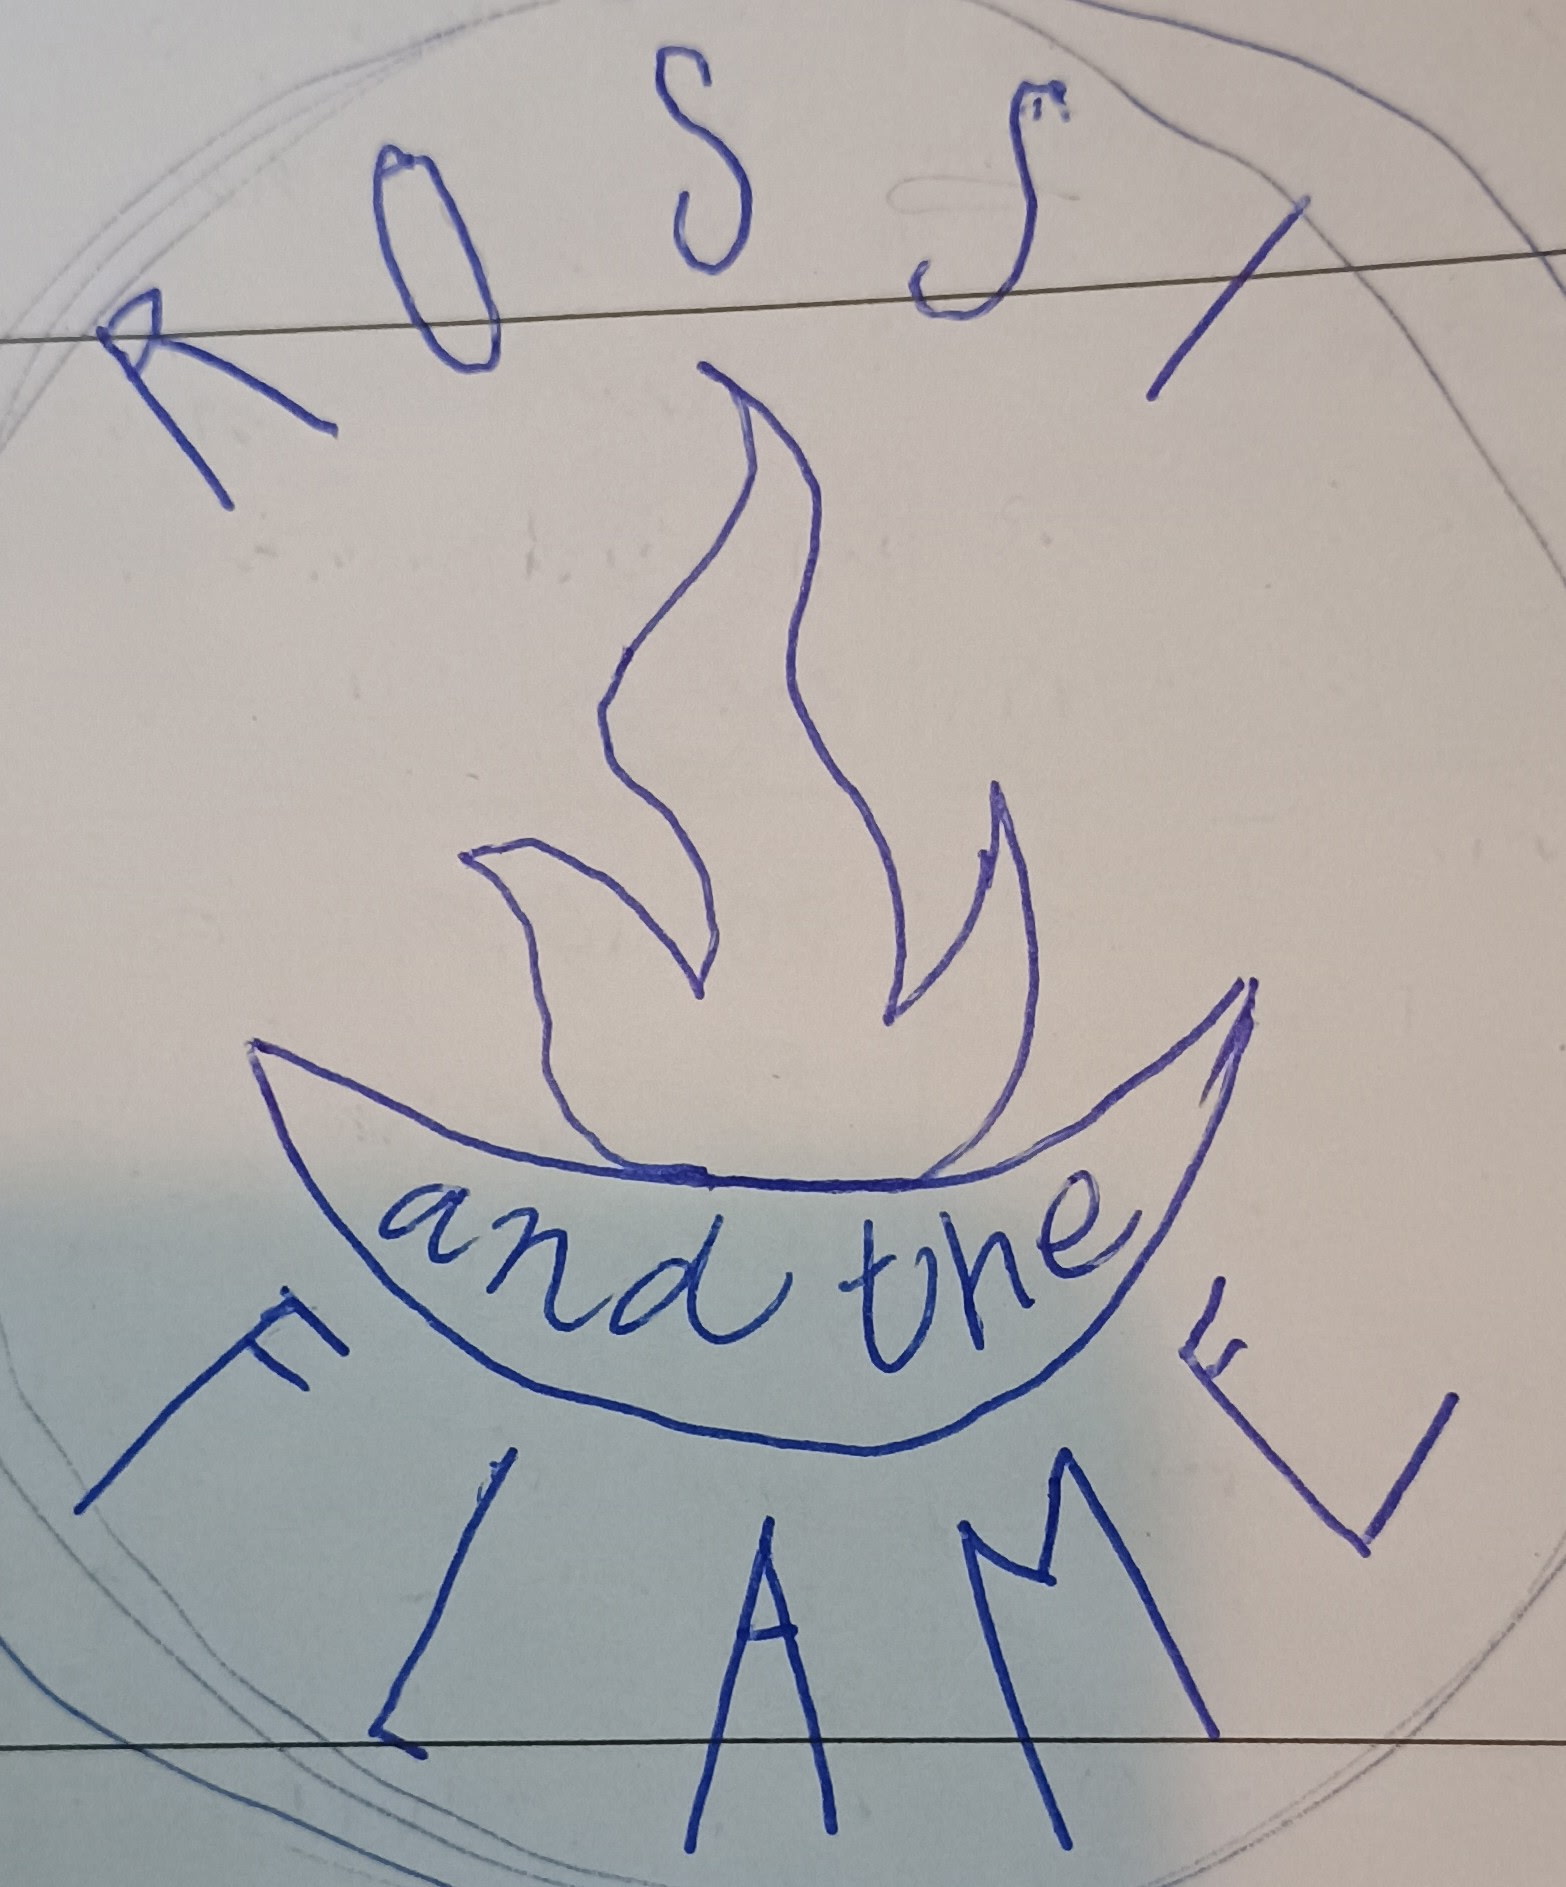 ROSSI
and the
FLAME